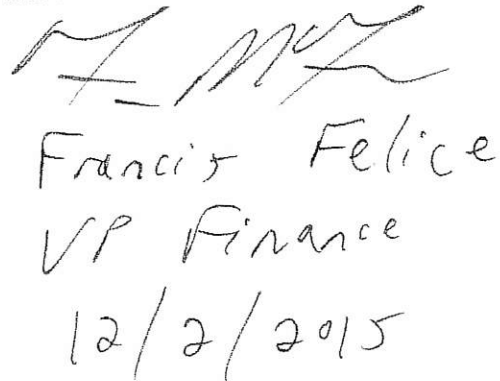 Francis Felice
VP Finance
12/2/2015